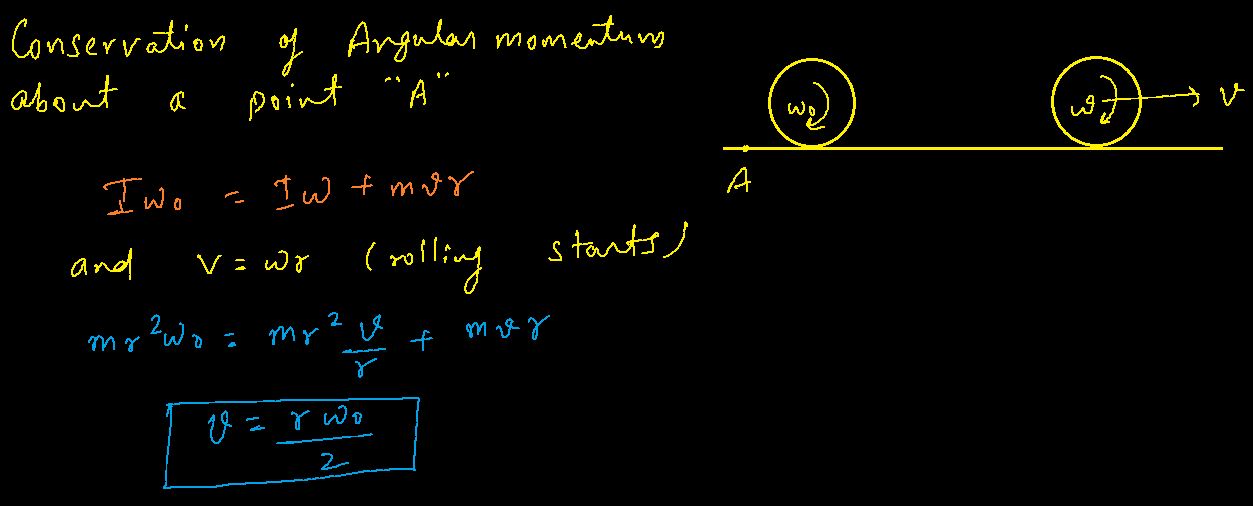 Conservation of Angular momentum
about a point "A"
Iω₀ = Iω + mvr
and v = ωr (rolling starts)
mr²ω₀ = mr² v/r + mvr
v = rω₀/2
ω₀
ω
v
A